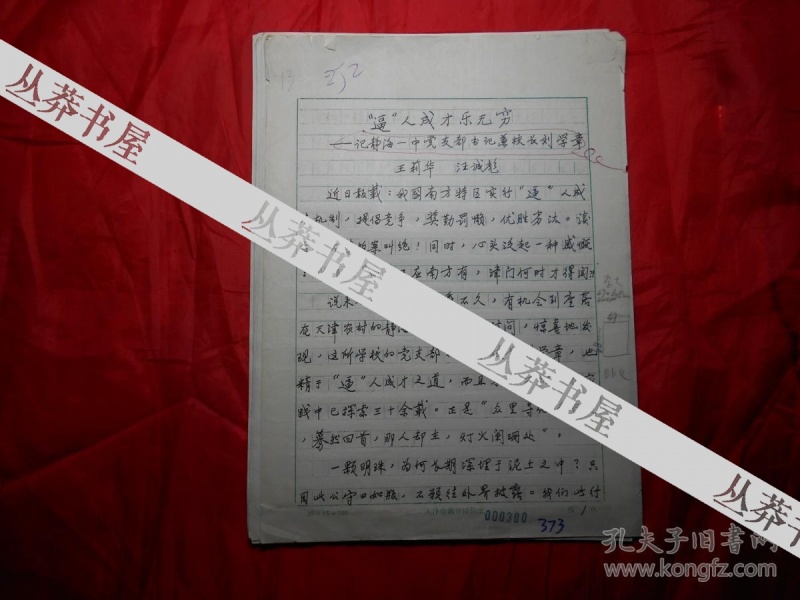 "逼"人成才乐无穷
——记静海一中党支部书记兼校长刘学章
王莉华 汪诚彪
近日报载：我国南方特区实行"逼"人成
机制，提倡竞争，奖勤罚懒，优胜劣汰。读
案叫绝！同时，心头泛起一种感慨
在南方有，津门何时才得闻？
说来 不久，有机会到坐落
在天津农村的静海 间，惊喜地发
现，这所学校的党支部 学章，也
精于"逼"人成才之道，而且
践中已探索三十余载。正是"众里寻
，蓦然回首，那人却在，灯火阑珊处"。
一颗明珠，为何长期深埋于泥土之中？只
因此公守口如瓶，不愿往外界披露。我们此行
000300
373
丛莽书屋
丛莽书屋
丛莽书屋
孔夫子旧书网
www.kongfz.com